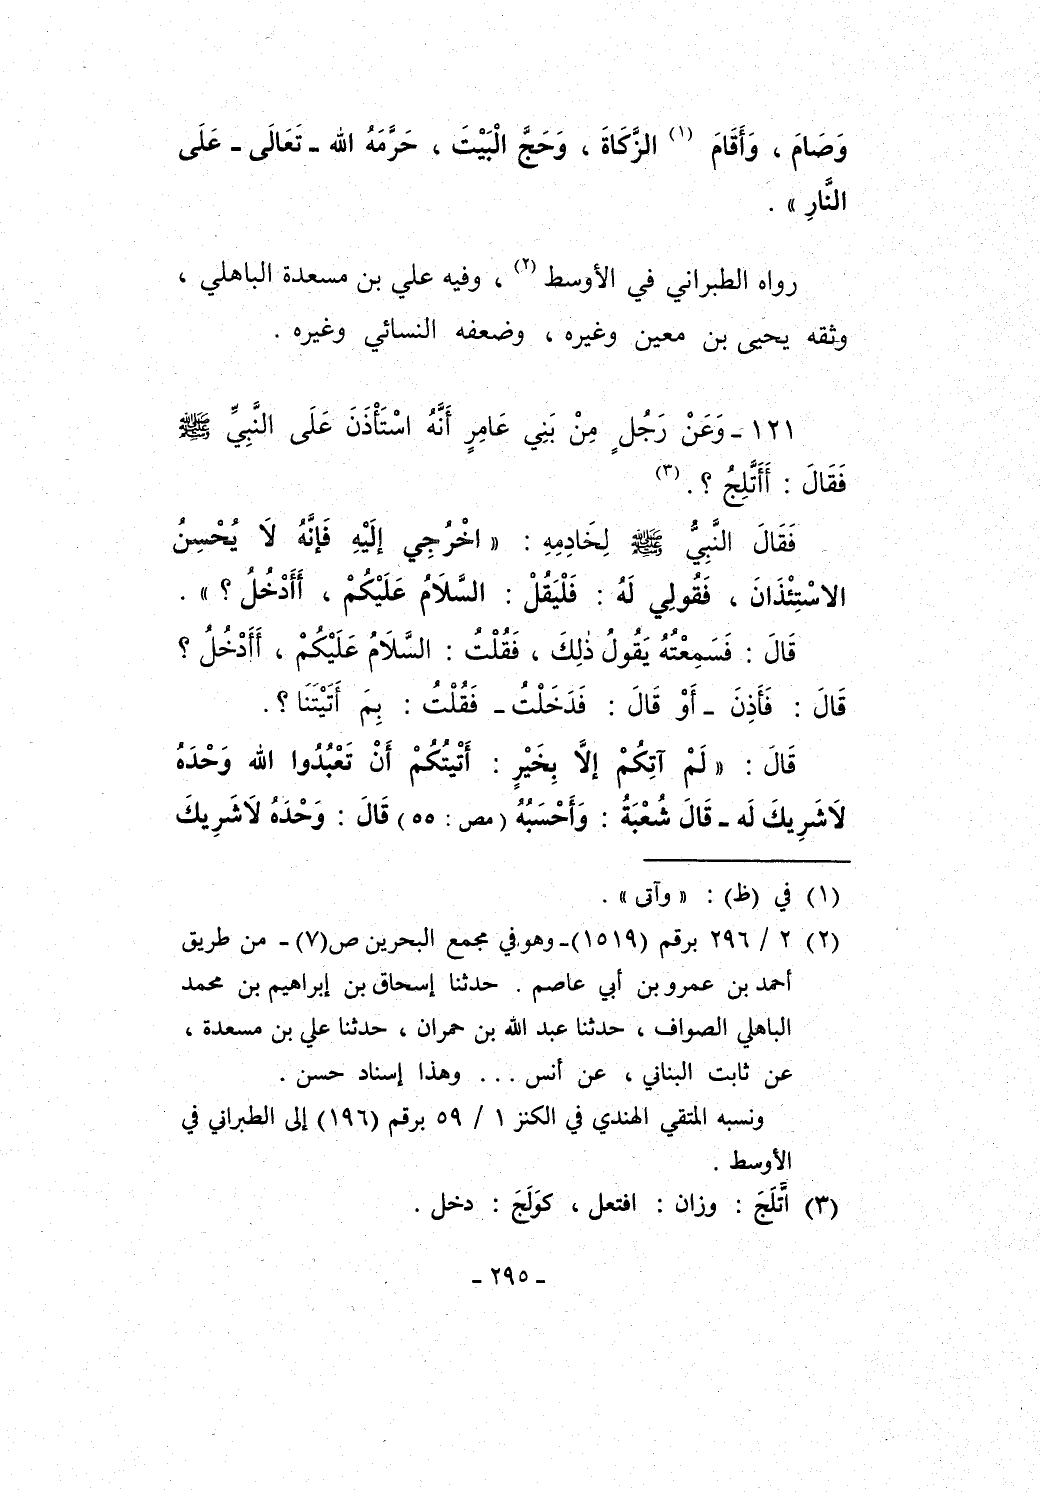 وَصَامَ ، وَأَقَامَ (١) الزَّكَاةَ ، وَحَجَّ الْبَيْتَ ، حَرَّمَهُ الله ـ تَعَالَى ـ عَلَى
النَّارِ » .
رواه الطبراني في الأوسط (٢) ، وفيه علي بن مسعدة الباهلي ،
وثقه يحيى بن معين وغيره ، وضعفه النسائي وغيره .
١٢١ ـ وَعَنْ رَجُلٍ مِنْ بَنِي عَامِرٍ أَنَّهُ اسْتَأْذَنَ عَلَى النَّبِيِّ ﷺ
فَقَالَ : أَأَتَّلِجُ ؟ . (٣)
فَقَالَ النَّبِيُّ ﷺ لِخَادِمِهِ : « اخْرُجِي إلَيْهِ فَإنَّهُ لَا يُحْسِنُ
الاسْتِئْذَانَ ، فَقُولِي لَهُ : فَلْيَقُلْ : السَّلَامُ عَلَيْكُمْ ، أَأَدْخُلُ ؟ » .
قَالَ : فَسَمِعْتُهُ يَقُولُ ذٰلِكَ ، فَقُلْتُ : السَّلَامُ عَلَيْكُمْ ، أَأَدْخُلُ ؟
قَالَ : فَأَذِنَ ـ أَوْ قَالَ : فَدَخَلْتُ ـ فَقُلْتُ : بِمَ أَتَيْتَنَا ؟ .
قَالَ : « لَمْ آتِكُمْ إلَّا بِخَيْرٍ : أَتْيتُكُمْ أَنْ تَعْبُدُوا الله وَحْدَهُ
لَاشَرِيكَ لَه ـ قَالَ شُعْبَةُ : وَأَحْسَبُهُ ( مص : ٥٥ ) قَالَ : وَحْدَهُ لَاشَرِيكَ
(١) في (ظ) : « وآتى » .
(٢) ٢ / ٢٩٦ برقم (١٥١٩) ـ وهو في مجمع البحرين ص(٧) ـ من طريق
أحمد بن عمرو بن أبي عاصم . حدثنا إسحاق بن إبراهيم بن محمد
الباهلي الصواف ، حدثنا عبد الله بن حمران ، حدثنا علي بن مسعدة ،
عن ثابت البناني ، عن أنس . . . وهذا إسناد حسن .
ونسبه المتقي الهندي في الكنز ١ / ٥٩ برقم (١٩٦) إلى الطبراني في
الأوسط .
(٣) اتَّلَجَ : وزان : افتعل ، كوَلَجَ : دخل .
ـ ٢٩٥ ـ